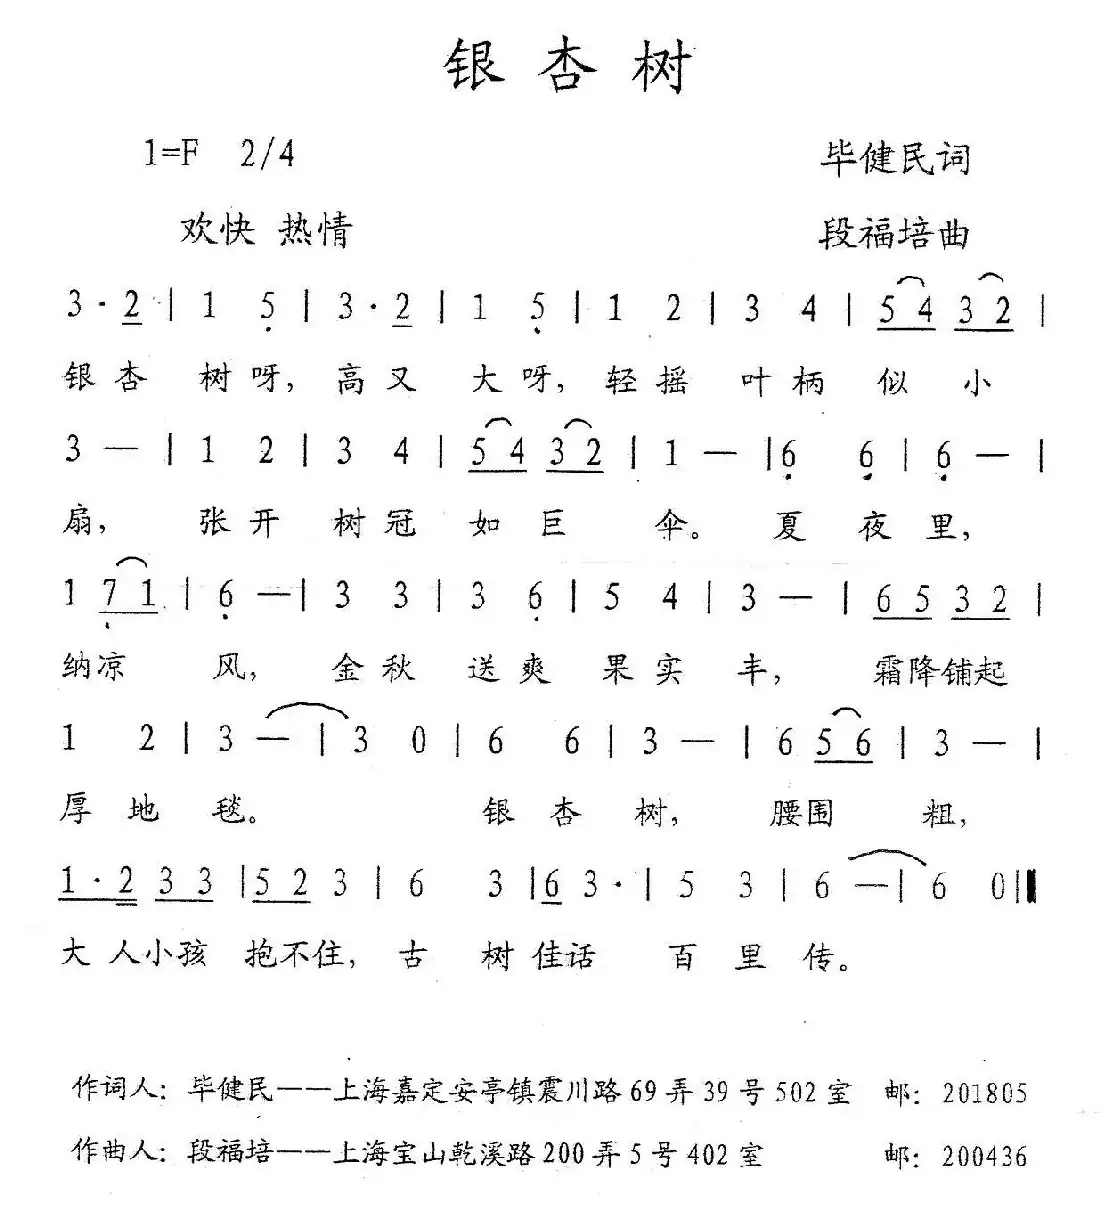 银杏树
1=F 2/4
毕健民词
欢快 热情
段福培曲
3·2 | 1 5 | 3·2 | 1 5 | 1 2 | 3 4 | 5 4 3 2 |
银杏 树呀, 高又 大呀, 轻摇 叶柄 似 小
3 — | 1 2 | 3 4 | 5 4 3 2 | 1 — | 6 6 | 6 — |
扇, 张开 树冠 如巨 伞。 夏 夜 里,
1 7 1 | 6 — | 3 3 | 3 6 | 5 4 | 3 — | 6 5 3 2 |
纳凉 风, 金秋 送爽 果实 丰, 霜降铺起
1 2 | 3 — | 3 0 | 6 6 | 3 — | 6 5 6 | 3 — |
厚 地 毯。 银 杏 树, 腰围 粗,
1·2 3 3 | 5 2 3 | 6 3 | 6 3· | 5 3 | 6 — | 6 0 ‖
大 人小孩 抱不住, 古 树佳话 百 里 传。
作词人: 毕健民——上海嘉定安亭镇震川路 69 弄 39 号 502 室 邮: 201805
作曲人: 段福培——上海宝山乾溪路 200 弄 5 号 402 室 邮: 200436